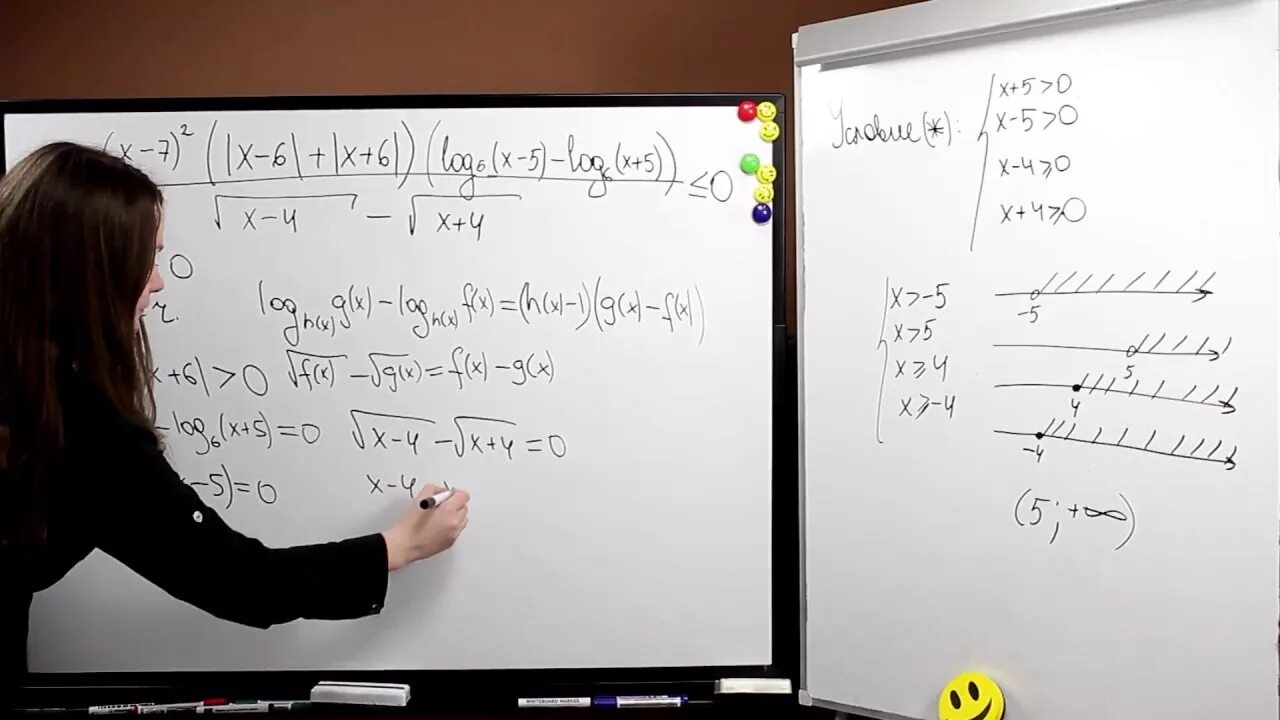 (x-7)² (|x-6|+|x+6|)(log₆(x-5)-log₆(x+5))
≤0
√x-4 - √x+4
=0
log_h(x) g(x)-log_h(x) f(x)=(h(x)-1)(g(x)-f(x))
x+6|>0 √f(x) -√g(x)=f(x)-g(x)
-log₆(x+5)=0 √x-4 -√x+4 =0
-5)=0 x-4
Условие(*):
x+5>0
x-5>0
x-4≥0
x+4≥0
x>-5
-5
x>5
5
x≥4
4
x≥-4
-4
(5;+∞)
WHITEBOARD MARKER